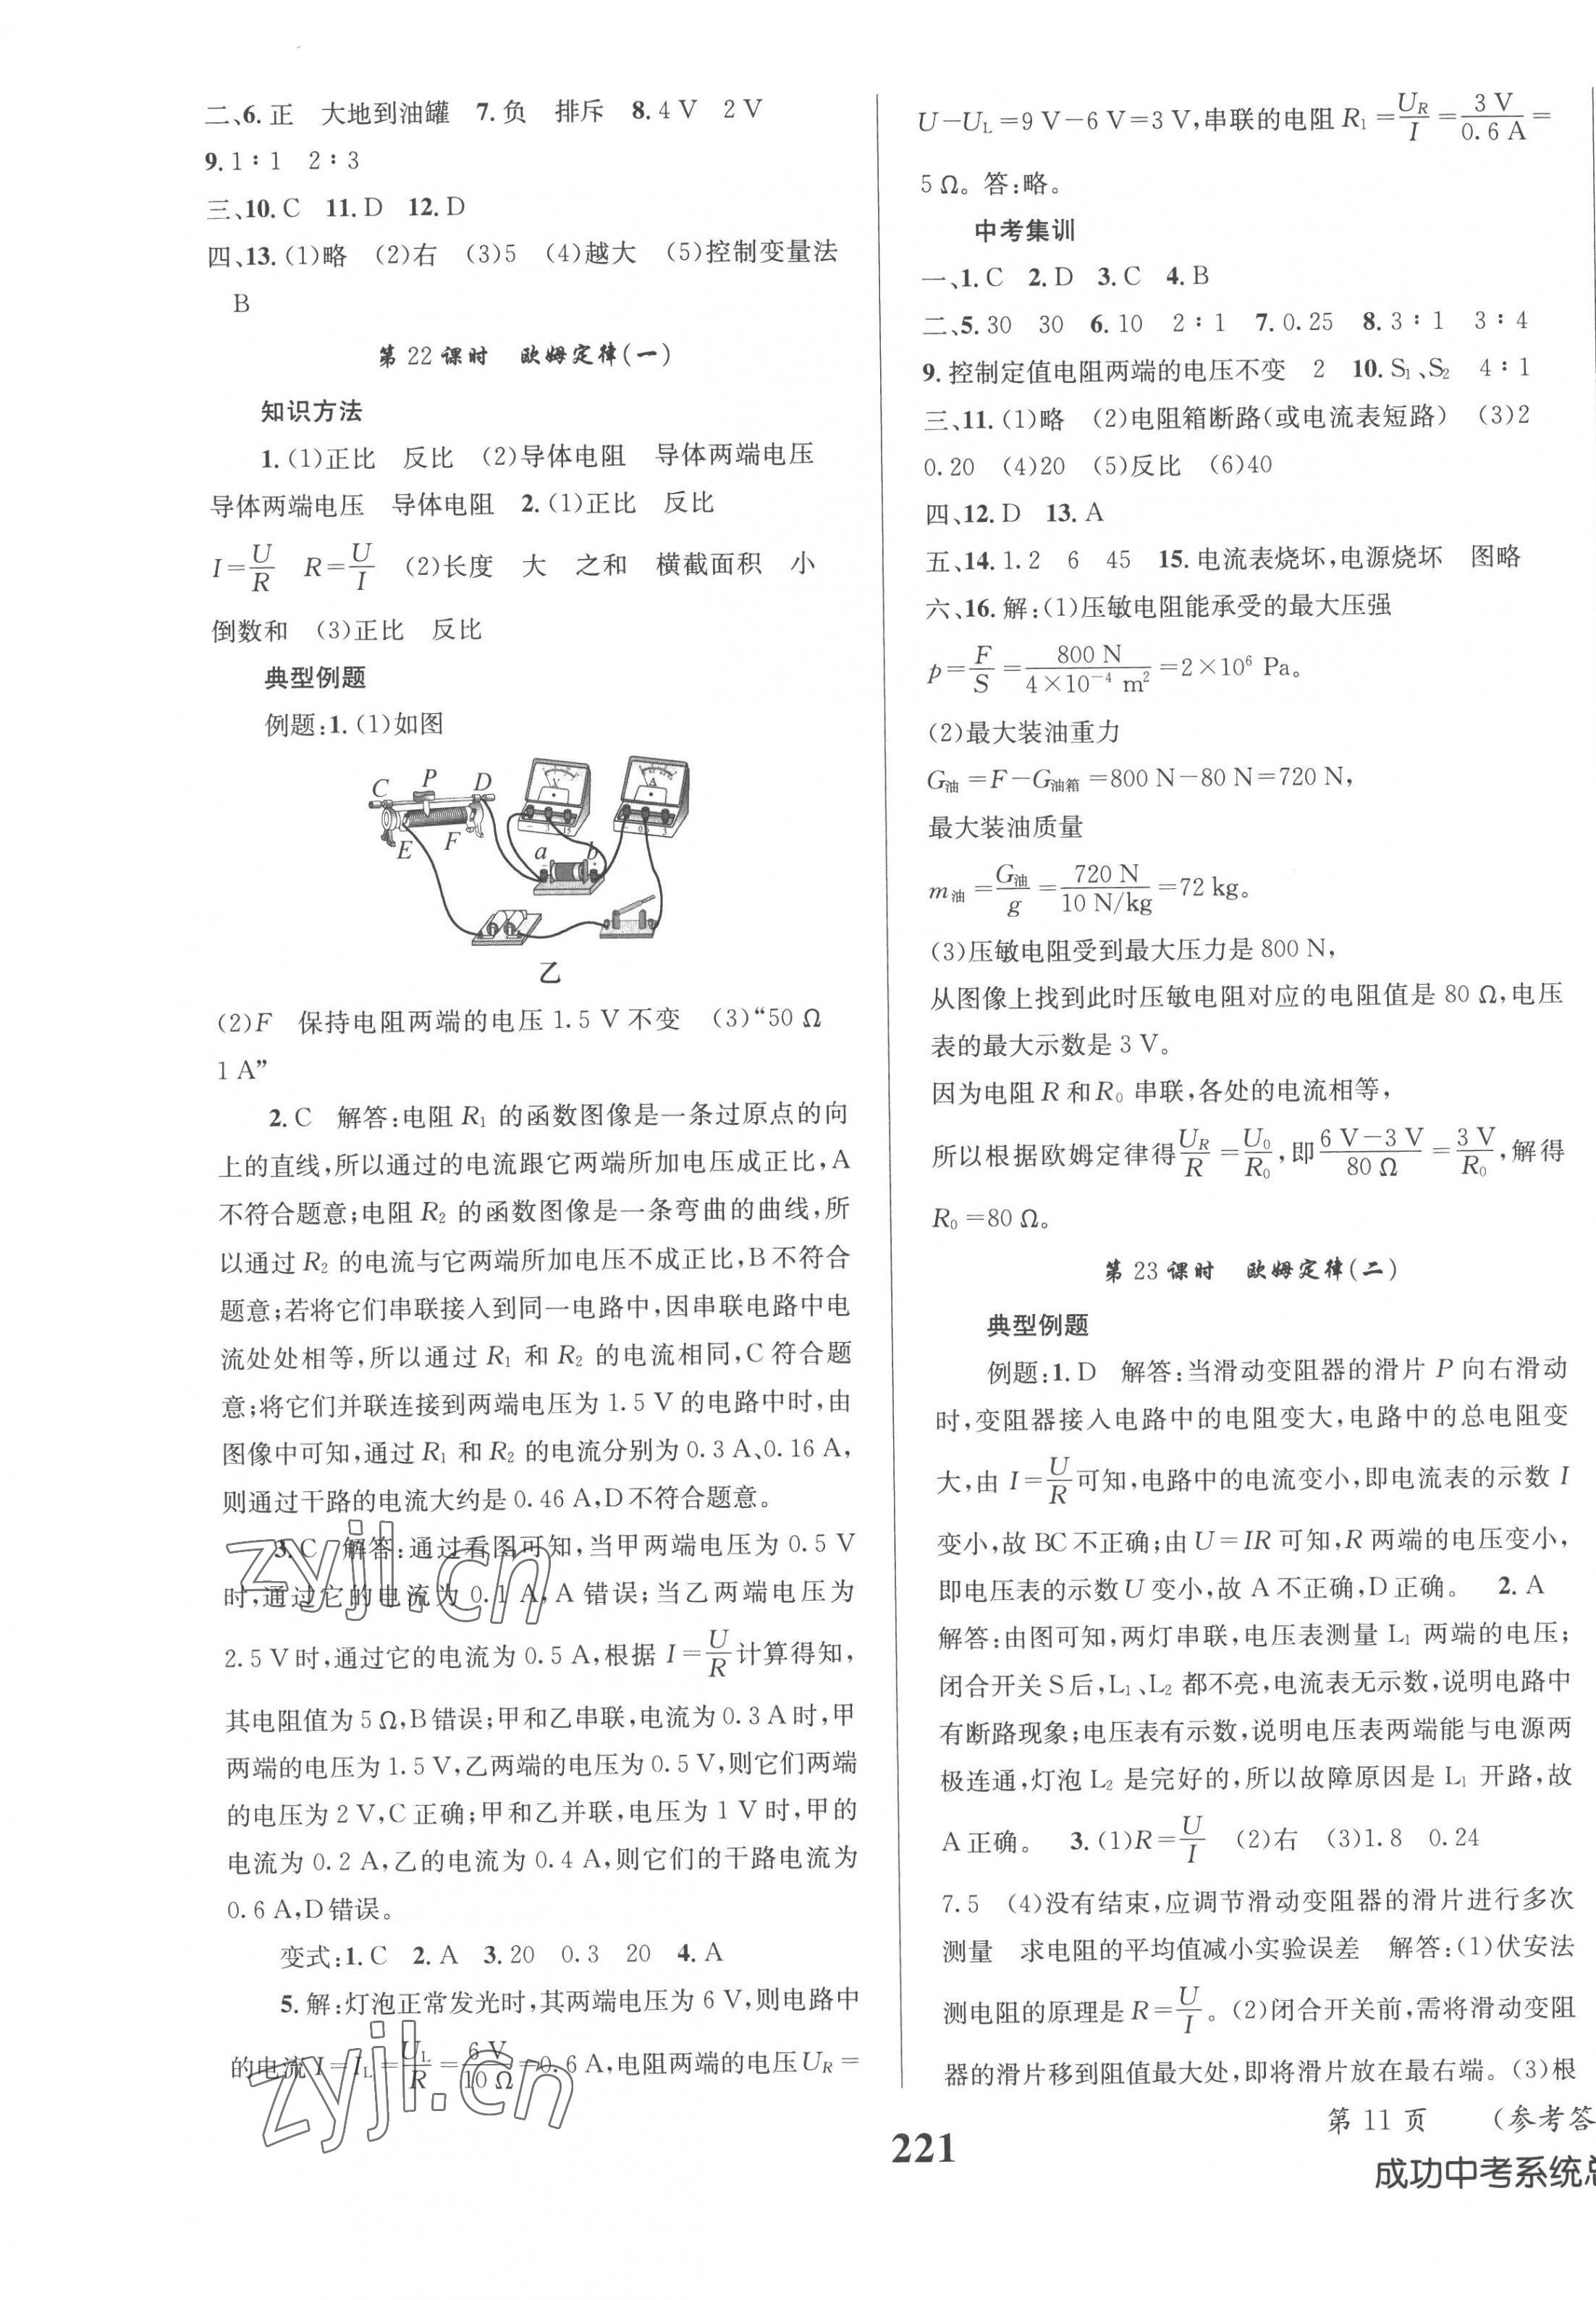 二、6.正　大地到油罐　7.负　排斥　8.4 V　2 V
9.1∶1　2∶3
三、10.C　11.D　12.D
四、13.(1)略　(2)右　(3)5　(4)越大　(5)控制变量法
B
第 22 课时　欧姆定律(一)
知识方法
1.(1)正比　反比　(2)导体电阻　导体两端电压
导体两端电压　导体电阻　2.(1)正比　反比
I=U/R　R=U/I　(2)长度　大　之和　横截面积　小
倒数和　(3)正比　反比
典型例题
例题:1.(1)如图
C P D
E F
V
A
- 3 15
- 0.6 3
a b
乙
(2)F　保持电阻两端的电压 1.5 V 不变　(3)“50 Ω
1 A”
2.C　解答:电阻 R₁ 的函数图像是一条过原点的向
上的直线,所以通过的电流跟它两端所加电压成正比,A
不符合题意;电阻 R₂ 的函数图像是一条弯曲的曲线,所
以通过 R₂ 的电流与它两端所加电压不成正比,B 不符合
题意;若将它们串联接入到同一电路中,因串联电路中电
流处处相等,所以通过 R₁ 和 R₂ 的电流相同,C 符合题
意;将它们并联连接到两端电压为 1.5 V 的电路中时,由
图像中可知,通过 R₁ 和 R₂ 的电流分别为 0.3 A、0.16 A,
则通过干路的电流大约是 0.46 A,D 不符合题意。
3.C　解答:通过看图可知,当甲两端电压为 0.5 V
时,通过它的电流为 0.1 A,A 错误;当乙两端电压为
2.5 V 时,通过它的电流为 0.5 A,根据 I=U/R 计算得知,
其电阻值为 5 Ω,B 错误;甲和乙串联,电流为 0.3 A 时,甲
两端的电压为 1.5 V,乙两端的电压为 0.5 V,则它们两端
的电压为 2 V,C 正确;甲和乙并联,电压为 1 V 时,甲的
电流为 0.2 A,乙的电流为 0.4 A,则它们的干路电流为
0.6 A,D 错误。
变式:1.C　2.A　3.20　0.3　20　4.A
5.解:灯泡正常发光时,其两端电压为 6 V,则电路中
的电流 I=I_L=U_L/R=6 V/10 Ω=0.6 A,电阻两端的电压 U_R=
zyjl.cn
zyjl.cn
U-U_L=9 V-6 V=3 V,串联的电阻 R₁=U_R/I=3 V/0.6 A=
5 Ω。答:略。
中考集训
一、1.C　2.D　3.C　4.B
二、5.30　30　6.10　2∶1　7.0.25　8.3∶1　3∶4
9.控制定值电阻两端的电压不变　2　10.S₁、S₂　4∶1
三、11.(1)略　(2)电阻箱断路(或电流表短路)　(3)2
0.20　(4)20　(5)反比　(6)40
四、12.D　13.A
五、14.1.2　6　45　15.电流表烧坏,电源烧坏　图略
六、16.解:(1)压敏电阻能承受的最大压强
p=F/S=800 N/4×10⁻⁴ m²=2×10⁶ Pa。
(2)最大装油重力
G油=F-G油箱=800 N-80 N=720 N,
最大装油质量
m油=G油/g=720 N/10 N/kg=72 kg。
(3)压敏电阻受到最大压力是 800 N,
从图像上找到此时压敏电阻对应的电阻值是 80 Ω,电压
表的最大示数是 3 V。
因为电阻 R 和 R₀ 串联,各处的电流相等,
所以根据欧姆定律得 U_R/R=U₀/R₀,即 6 V-3 V/80 Ω=3 V/R₀,解得
R₀=80 Ω。
第 23 课时　欧姆定律(二)
典型例题
例题:1.D　解答:当滑动变阻器的滑片 P 向右滑动
时,变阻器接入电路中的电阻变大,电路中的总电阻变
大,由 I=U/R 可知,电路中的电流变小,即电流表的示数 I
变小,故 BC 不正确;由 U=IR 可知,R 两端的电压变小,
即电压表的示数 U 变小,故 A 不正确,D 正确。　2.A
解答:由图可知,两灯串联,电压表测量 L₁ 两端的电压;
闭合开关 S 后,L₁、L₂ 都不亮,电流表无示数,说明电路中
有断路现象;电压表有示数,说明电压表两端能与电源两
极连通,灯泡 L₂ 是完好的,所以故障原因是 L₁ 开路,故
A 正确。　3.(1)R=U/I　(2)右　(3)1.8　0.24
7.5　(4)没有结束,应调节滑动变阻器的滑片进行多次
测量　求电阻的平均值减小实验误差　解答:(1)伏安法
测电阻的原理是 R=U/I。(2)闭合开关前,需将滑动变阻
器的滑片移到阻值最大处,即将滑片放在最右端。(3)根
221
第 11 页　(参考答
成功中考系统总